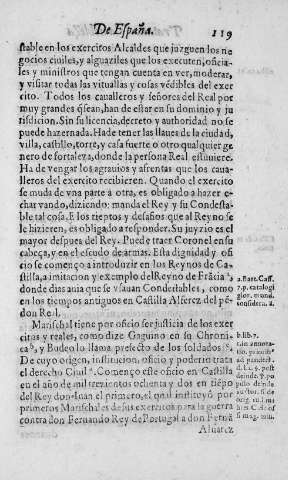 De España. 119
stable en los exercitos Alcaldes que juzguen los ne
gocios ciuiles, y alguaziles que los executen, oficia-
les y ministros que tengan cuenta en ver, moderar,
y visitar todas las vituallas y cosas vendibles del exer
cito. Todos los caualleros y señores del Real por
muy grandes q̃ sean, han de estar en su dominio y ju
risdicion. Sin su licencia, decreto y authoridad no se
puede hazer nada. Ha de tener las llaues de la ciudad,
villa, castillo, torre, y casa fuerte o otro qualquier ge
nero de fortaleza, donde la persona Real estuuiere.
Ha de vengar los agrauios y afrentas que los caua-
lleros del exercito recibieren. Quando el exercito
se muda de vna parte a otra, es obligado a hazer e-
char vando, diziendo: manda el Rey y su Condesta-
ble tal cosa. E los rieptos y desafios que al Reyno se
le hizieren, es obligado a responder. Su juyzio es el
mayor despues del Rey. Puede traer Coronel en su
cabeça, y en el escudo de armas. Esta dignidad y ofi
cio se començo a introduzir en los Reynos de Cas-
tilla, a imitacion y exemplo del Reyno de Frãcia ᵃ
donde dias auia que se vsauan Condestables, como
en los tiempos antiguos en Castilla Alferez del pé-
don Real.
Marischal tiene por oficio ser justicia de los exer
citos y reales, como dize Gaguino en su Chroni-
ca ᵇ, y Budeo lo llama prefecto de los soldados
De cuyo origen, institucion, oficio y poderio trata
el derecho Ciuil. Començo este oficio en Castilla
en el año de mil trezientos ochenta y dos en tiẽpo
del Rey don Iuan el primero, el qual instituyó por
primeros Marischales de sus exercitos para la guerra
contra don Fernando Rey de Portugal a don Fernã
Aluarez
a. Bart. Cass.
7. p. catalogi
glor. mund.
considera.
b. lib. 7.